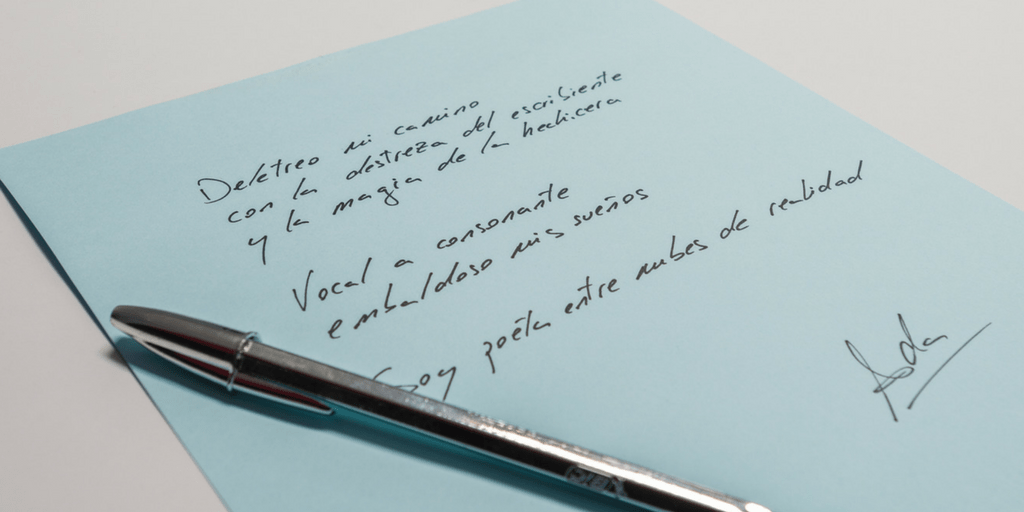 Deletreo mi camino
con la destreza del escribiente
y la magia de la hechicera
Vocal a consonante
embaldoso mis sueños
Soy poeta entre nubes de realidad
Ada
BIC